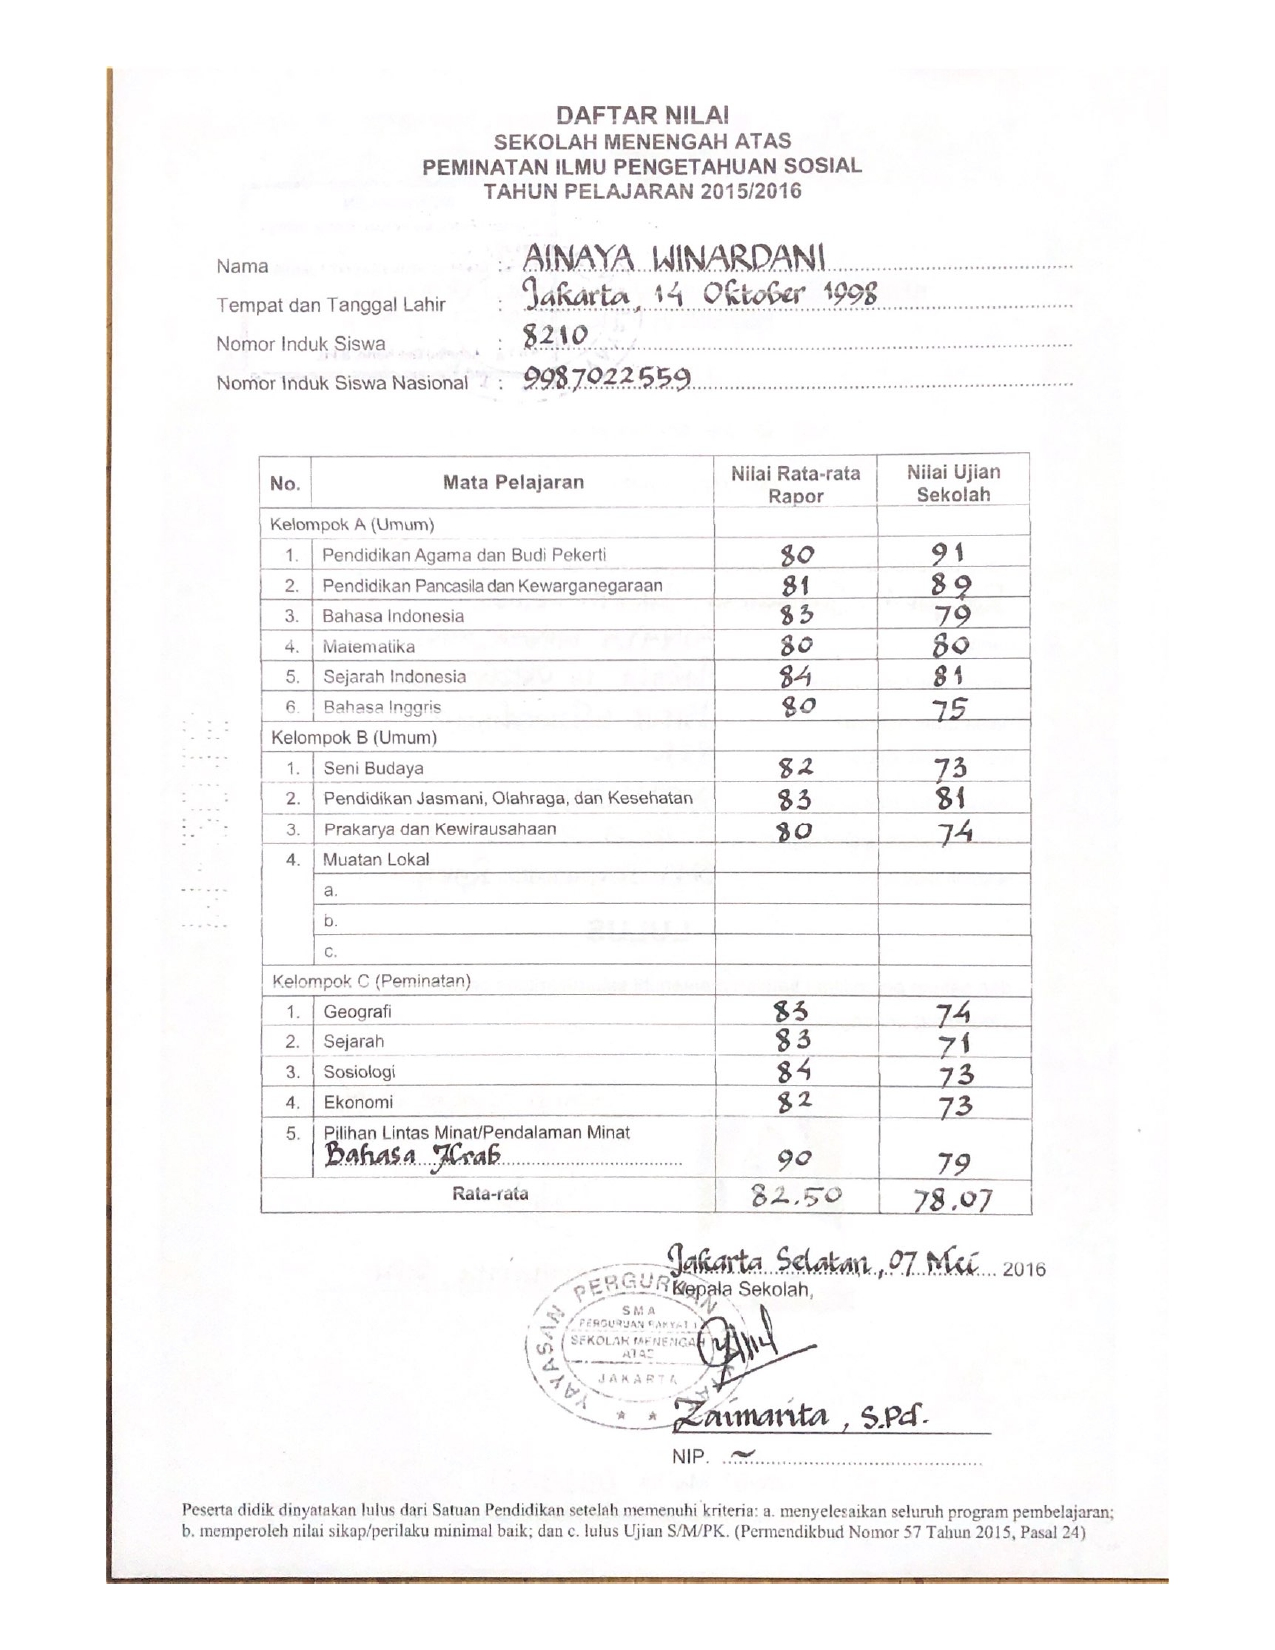 DAFTAR NILAI
SEKOLAH MENENGAH ATAS
PEMINATAN ILMU PENGETAHUAN SOSIAL
TAHUN PELAJARAN 2015/2016
Nama : AINAYA WINARDANI
Tempat dan Tanggal Lahir : Jakarta, 14 Oktober 1998
Nomor Induk Siswa : 8210
Nomor Induk Siswa Nasional : 9987022559
No. Mata Pelajaran Nilai Rata-rata Rapor Nilai Ujian Sekolah
Kelompok A (Umum)
1. Pendidikan Agama dan Budi Pekerti 80 91
2. Pendidikan Pancasila dan Kewarganegaraan 81 89
3. Bahasa Indonesia 83 79
4. Matematika 80 80
5. Sejarah Indonesia 84 81
6. Bahasa Inggris 80 75
Kelompok B (Umum)
1. Seni Budaya 82 73
2. Pendidikan Jasmani, Olahraga, dan Kesehatan 83 81
3. Prakarya dan Kewirausahaan 80 74
4. Muatan Lokal
a.
b.
c.
Kelompok C (Peminatan)
1. Geografi 83 74
2. Sejarah 83 71
3. Sosiologi 84 73
4. Ekonomi 82 73
5. Pilihan Lintas Minat/Pendalaman Minat
Bahasa Arab 90 79
Rata-rata 82.50 78.07
Jakarta Selatan, 07 Mei 2016
Kepala Sekolah,
YAYASAN PERGURUAN
SMA
PERGURUAN RAKYAT 1
SEKOLAH MENENGAH
ATAS
JAKARTA
Zaimarita, S.Pd.
NIP. ~
Peserta didik dinyatakan lulus dari Satuan Pendidikan setelah memenuhi kriteria: a. menyelesaikan seluruh program pembelajaran;
b. memperoleh nilai sikap/perilaku minimal baik; dan c. lulus Ujian S/M/PK. (Permendikbud Nomor 57 Tahun 2015, Pasal 24)